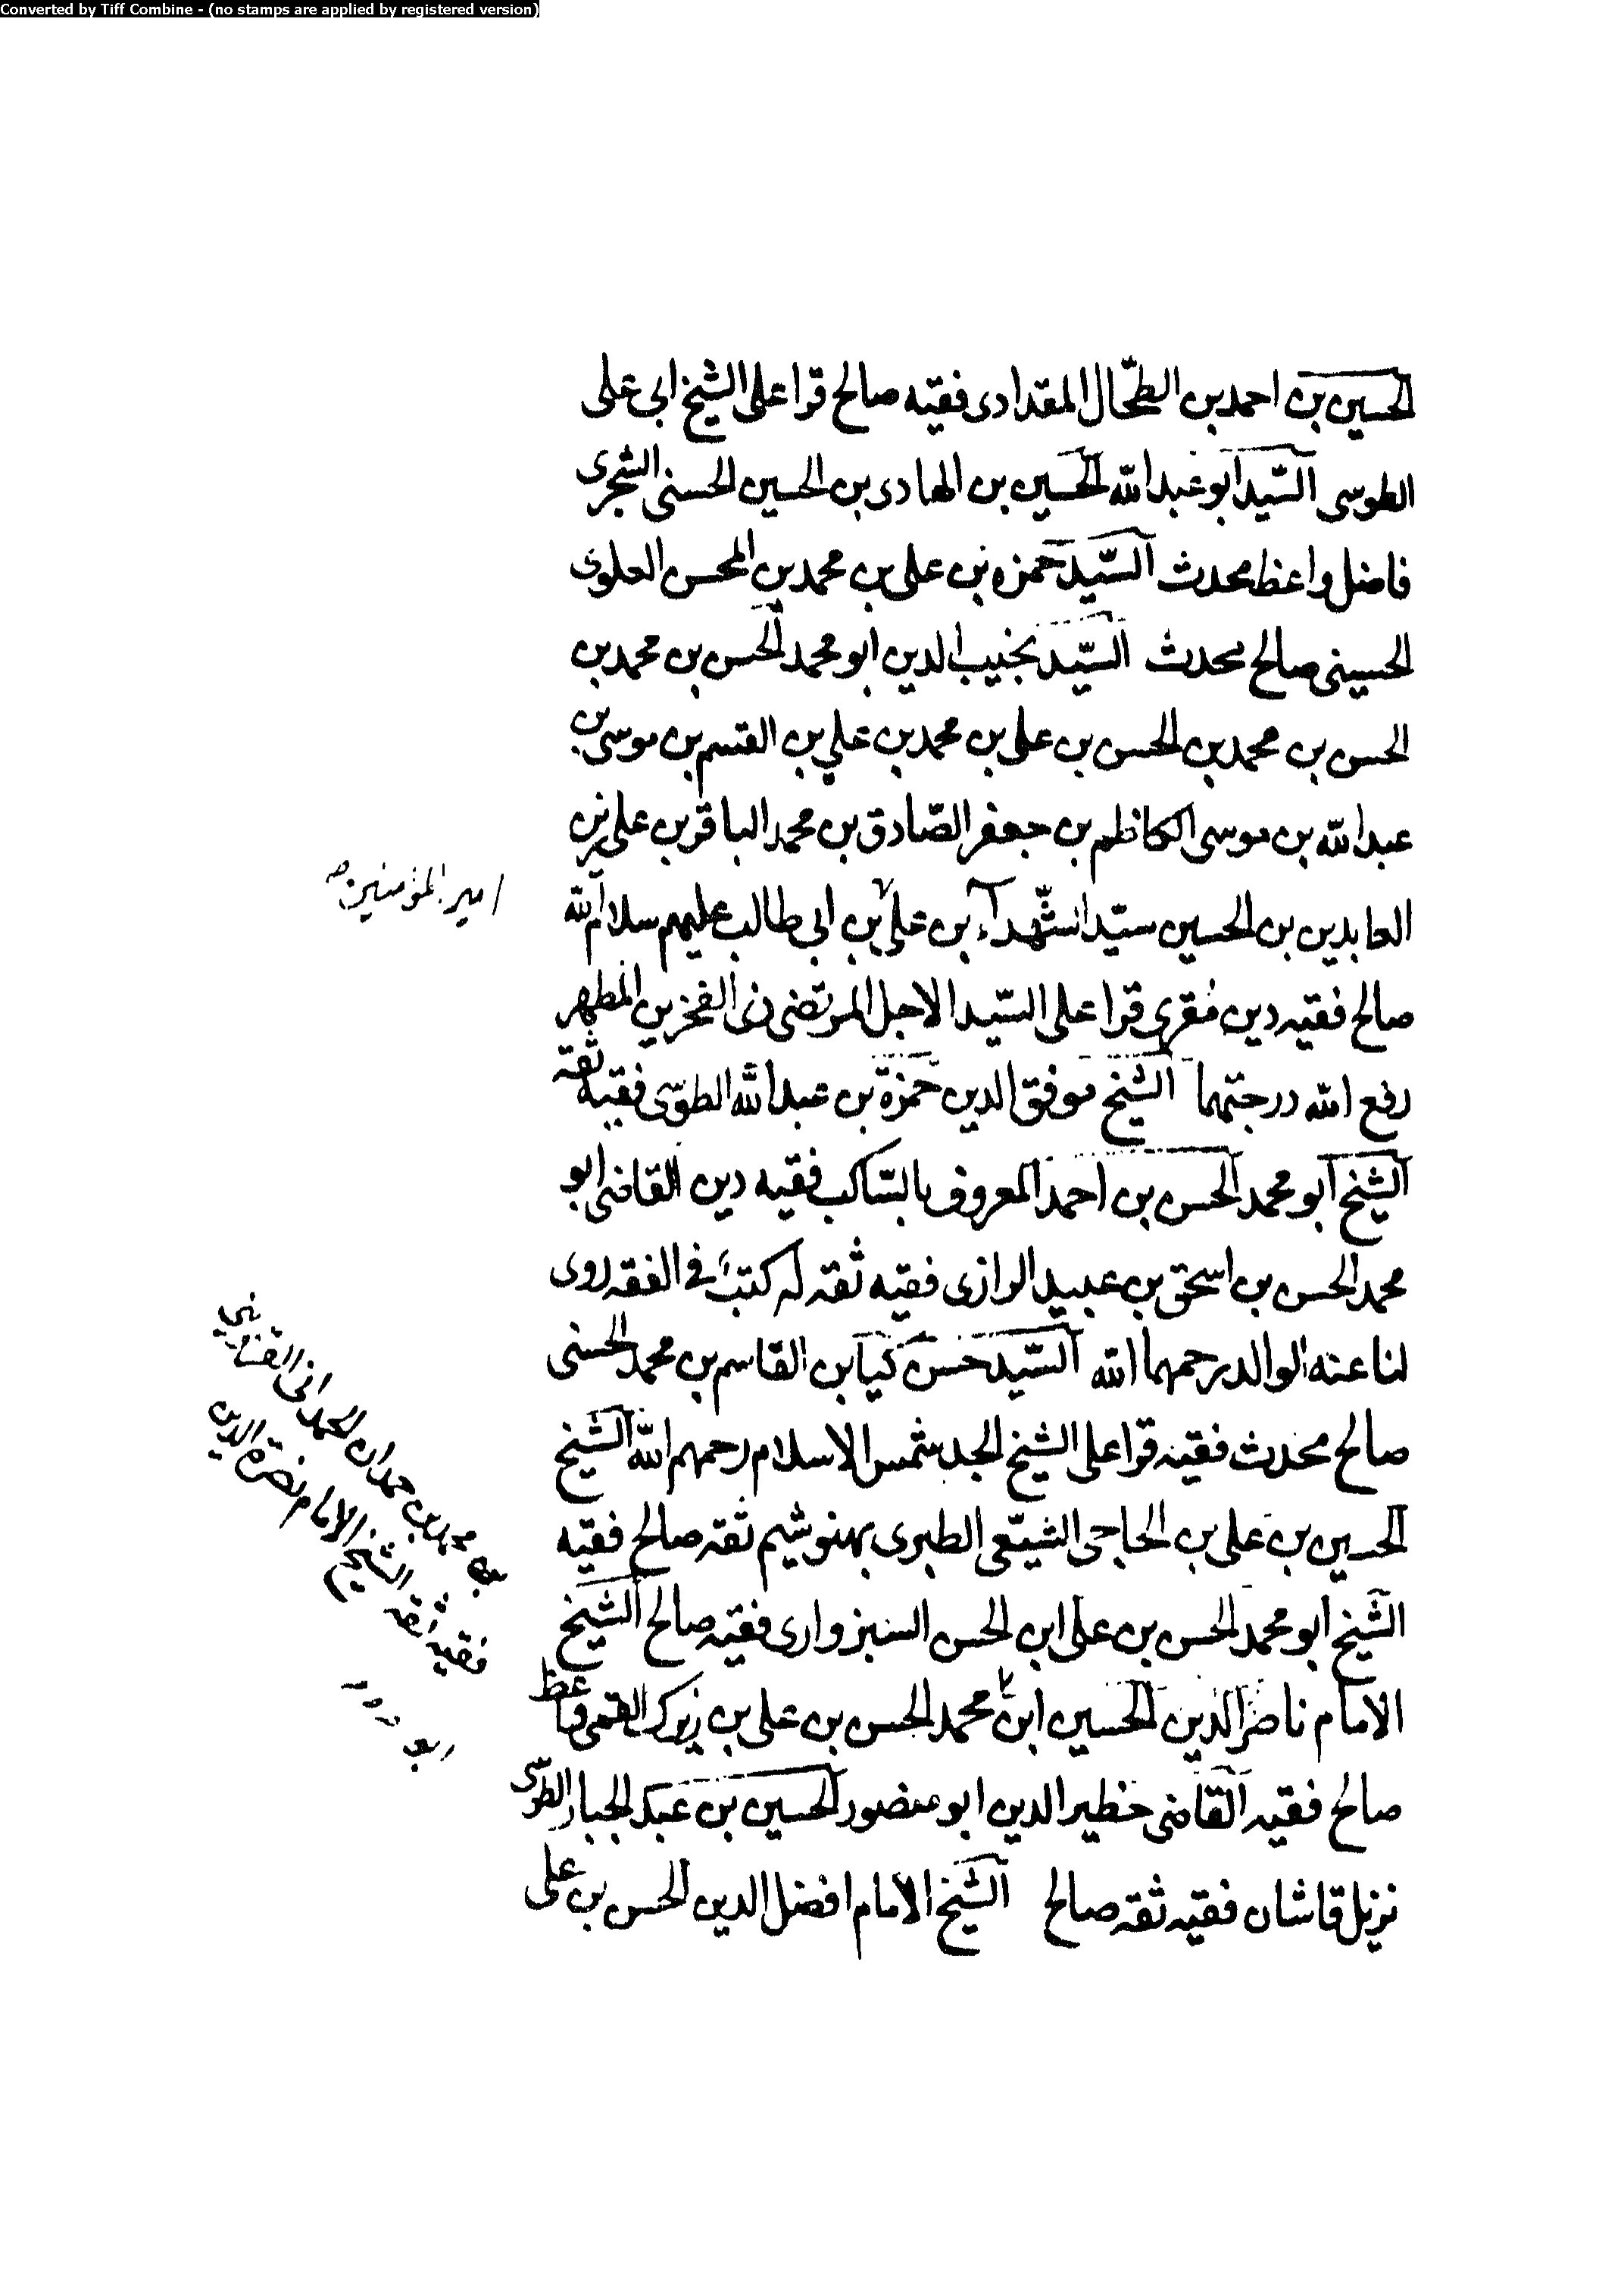 Converted by Tiff Combine - (no stamps are applied by registered version)
الحسين بن احمد بن الطحّال المقدادى فقيه صالح قرا على الشيخ ابى على
الطوسى السّيد ابو عبد الله الحسين بن الهادى بن الحسين الحسنى الشجرى
فاضل واعظ محدث السّيد حمزه بن على بن محمد بن المحسن العلوى
الحسينى صالح محدث السّيد نجيب الدين ابو محمد الحسن بن محمد بن
الحسن بن محمد بن الحسن بن على بن محمد بن علي بن القسم بن موسى بن
عبد الله بن موسى الكاظم بن جعفر الصّادق بن محمد الباقر بن على زين
العابدين بن الحسين سيّد الشّهدآء بن على بن ابى طالب عليهم سلام الله
امير المؤمنين صح
صالح فقيه دين مقرى قرا على السّيد الاجل المرتضى ذى الفخرين المطهر
رفع الله درجتهما الشيخ موفق الدين حمزة بن عبد الله الطوسى فقيه ثقة
الشيخ ابو محمد الحسن بن احمد المعروف بالسّاكب فقيه دين القاضى ابو
محمد الحسن بن اسحق بن عبيد الرازى فقيه ثقه له كتب فى الفقه روى
لنا عنه الوالد رحمهما الله السّيد حسن كيا بن القاسم بن محمد الحسنى
صالح محدث فقيه قرا على الشيخ الجد شمس الاسلام رحمهم الله الشيخ
الحسين بن على بن الحاجى الشيعى الطبرى بهنوشيم ثقه صالح فقيه
الشيخ ابو محمد الحسن بن على ابن الحسن السبزوارى فقيه صالح الشيخ
بن محمد بن حمدان الحمدانى القزوينى
فقيه ثقه الشيخ الامام نصرة الدين
الامام ناصر الدين الحسين ابن محمد الحسن بن على بن زيرك القمى واعظ
صالح فقيه القاضى خطير الدين ابو منصور الحسين بن عبد الجبار الطوسى
نزيل قاشان فقيه ثقه صالح الشيخ الامام افضل الدين الحسن بن على